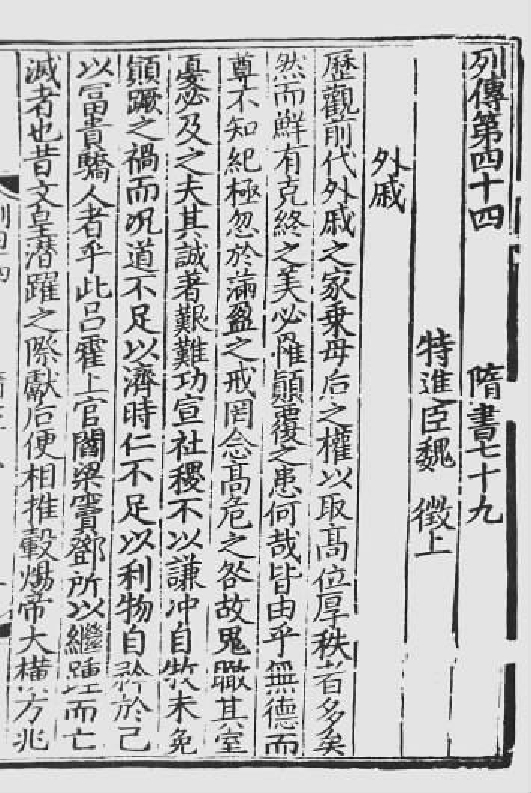 列傳第四十四 隋書七十九
特進臣魏 徵上
外戚
歷觀前代外戚之家乘母后之權以取高位厚秩者多矣
然而鮮有克終之美必罹顛覆之患何哉皆由乎無德而
尊不知紀極忽於滿盈之戒罔念高危之咎故鬼瞰其室
憂必及之夫其誠著艱難功宣社稷不以謙沖自牧未免
顛蹶之禍而況道不足以濟時仁不足以利物自矜於己
以富貴驕人者乎此呂霍上官閻梁竇鄧所以繼踵而亡
滅者也昔文皇潛躍之際獻后便相推轂煬帝大橫方兆